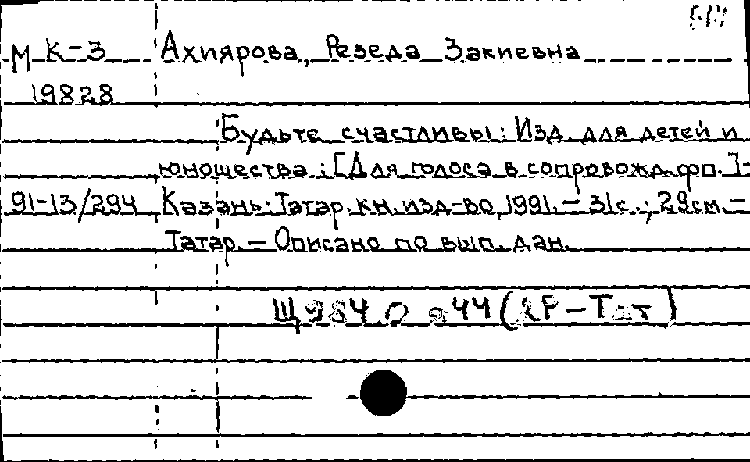 М К-3 Ахиярова, Резеда Закиевна
19828
Будьте счастливы: Изд. для детей и
юношества: [Для голоса в сопровожд. фп.]-
91-13/294 Казань: Татар. кн. изд-во, 1991. – 31с.; 29см. –
Татар. – Описано по вып. дан.
Щ984.0 я44(2Р-Тат)